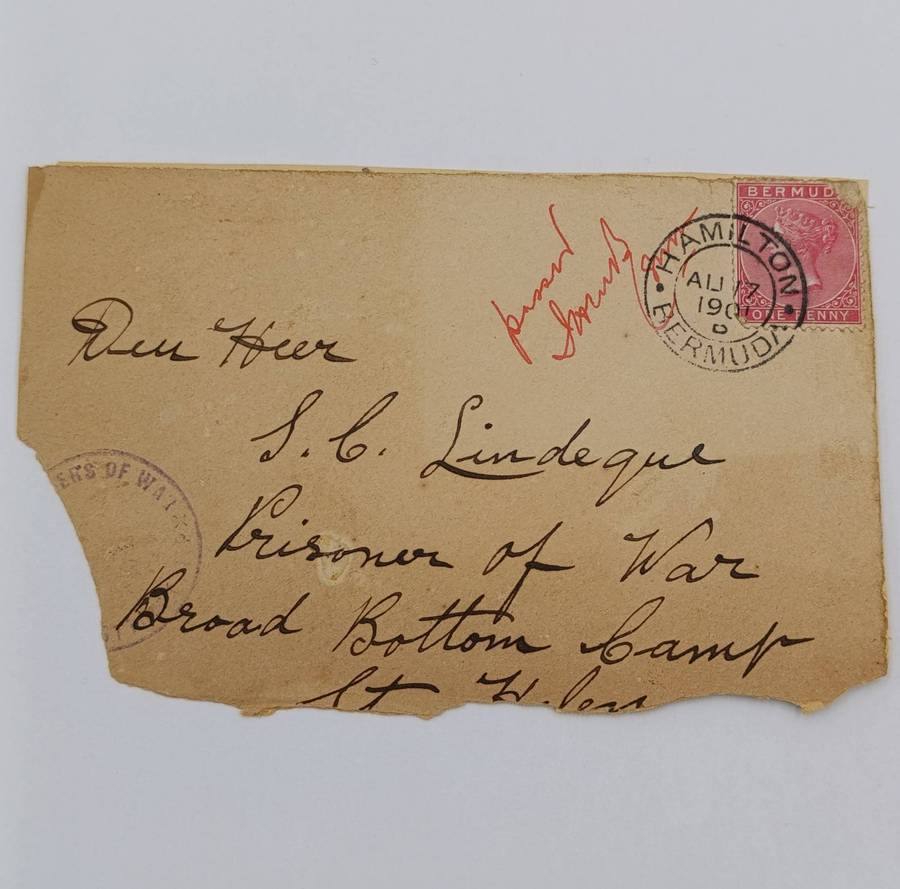 BERMUD
ONE PENNY
HAMILTON
AU 17
1901
D
BERMUDA
passed
Den Heer
S. C. Lindeque
ERS OF WAR
Prisoner of War
Broad Bottom Camp
St Helen